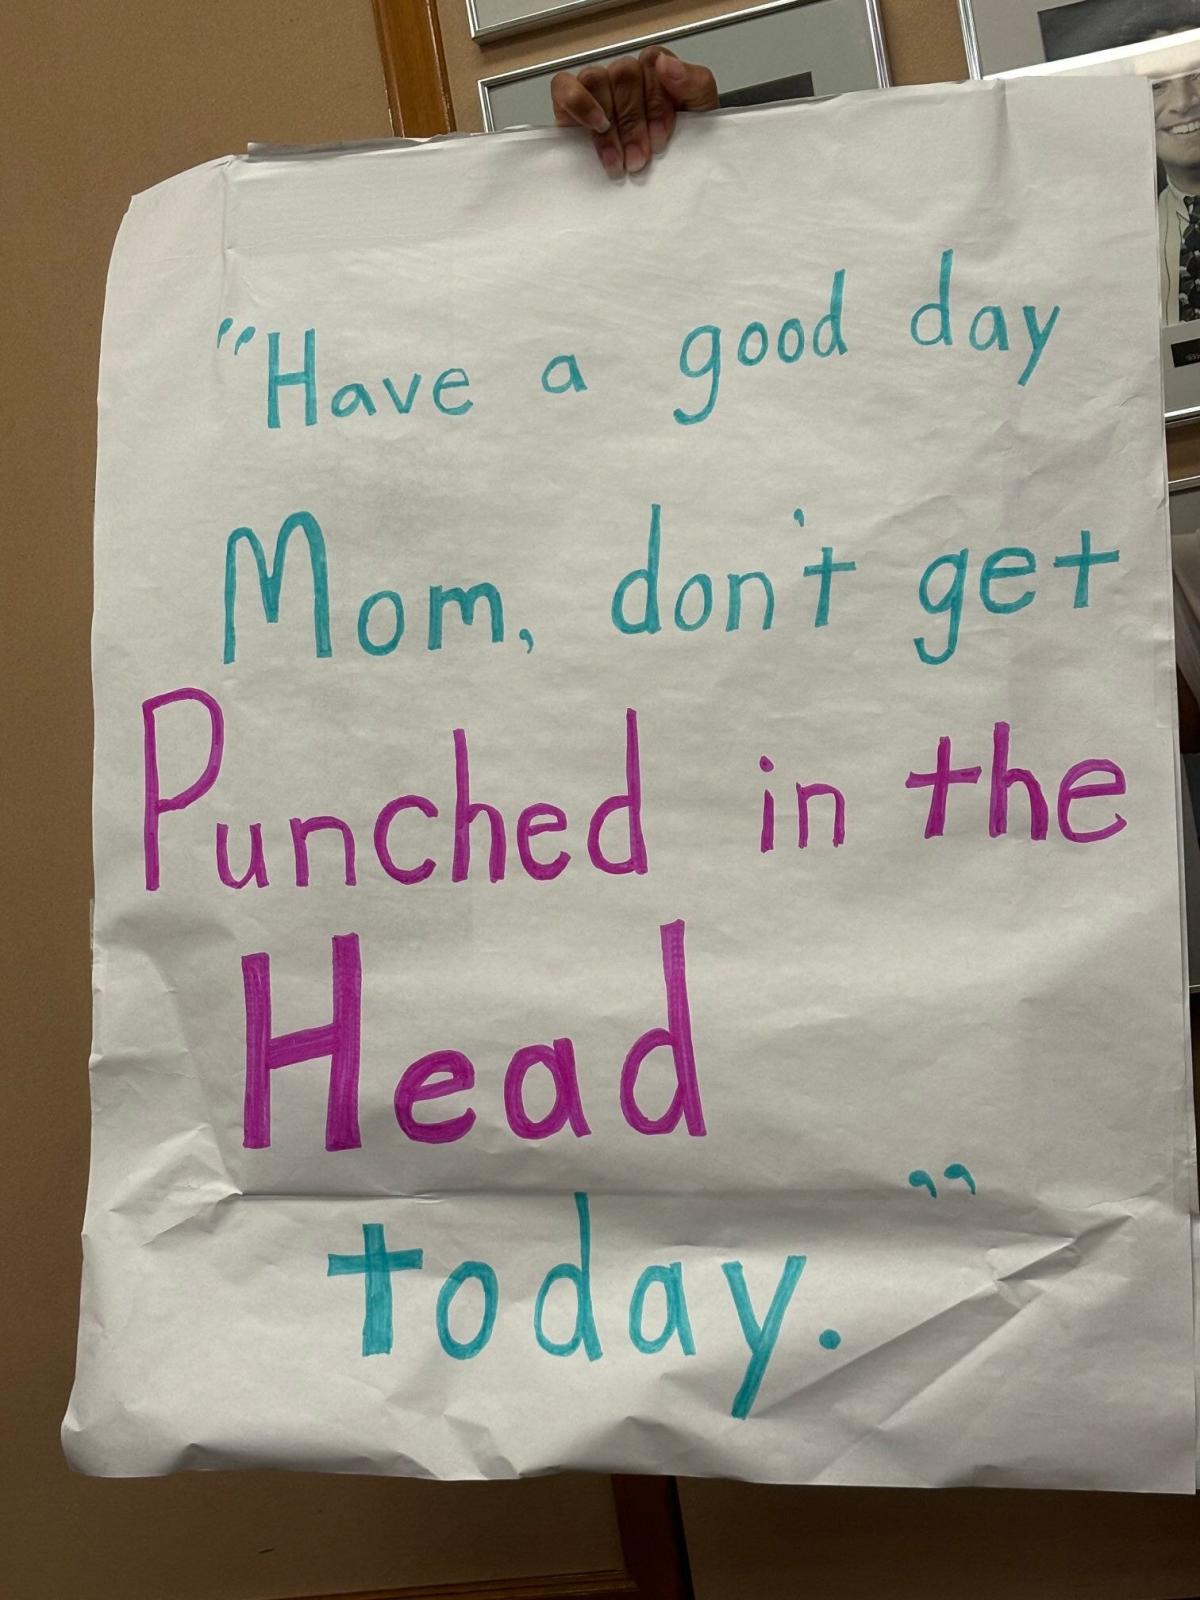 "Have a good day
Mom, don't get
Punched in the
Head
today."